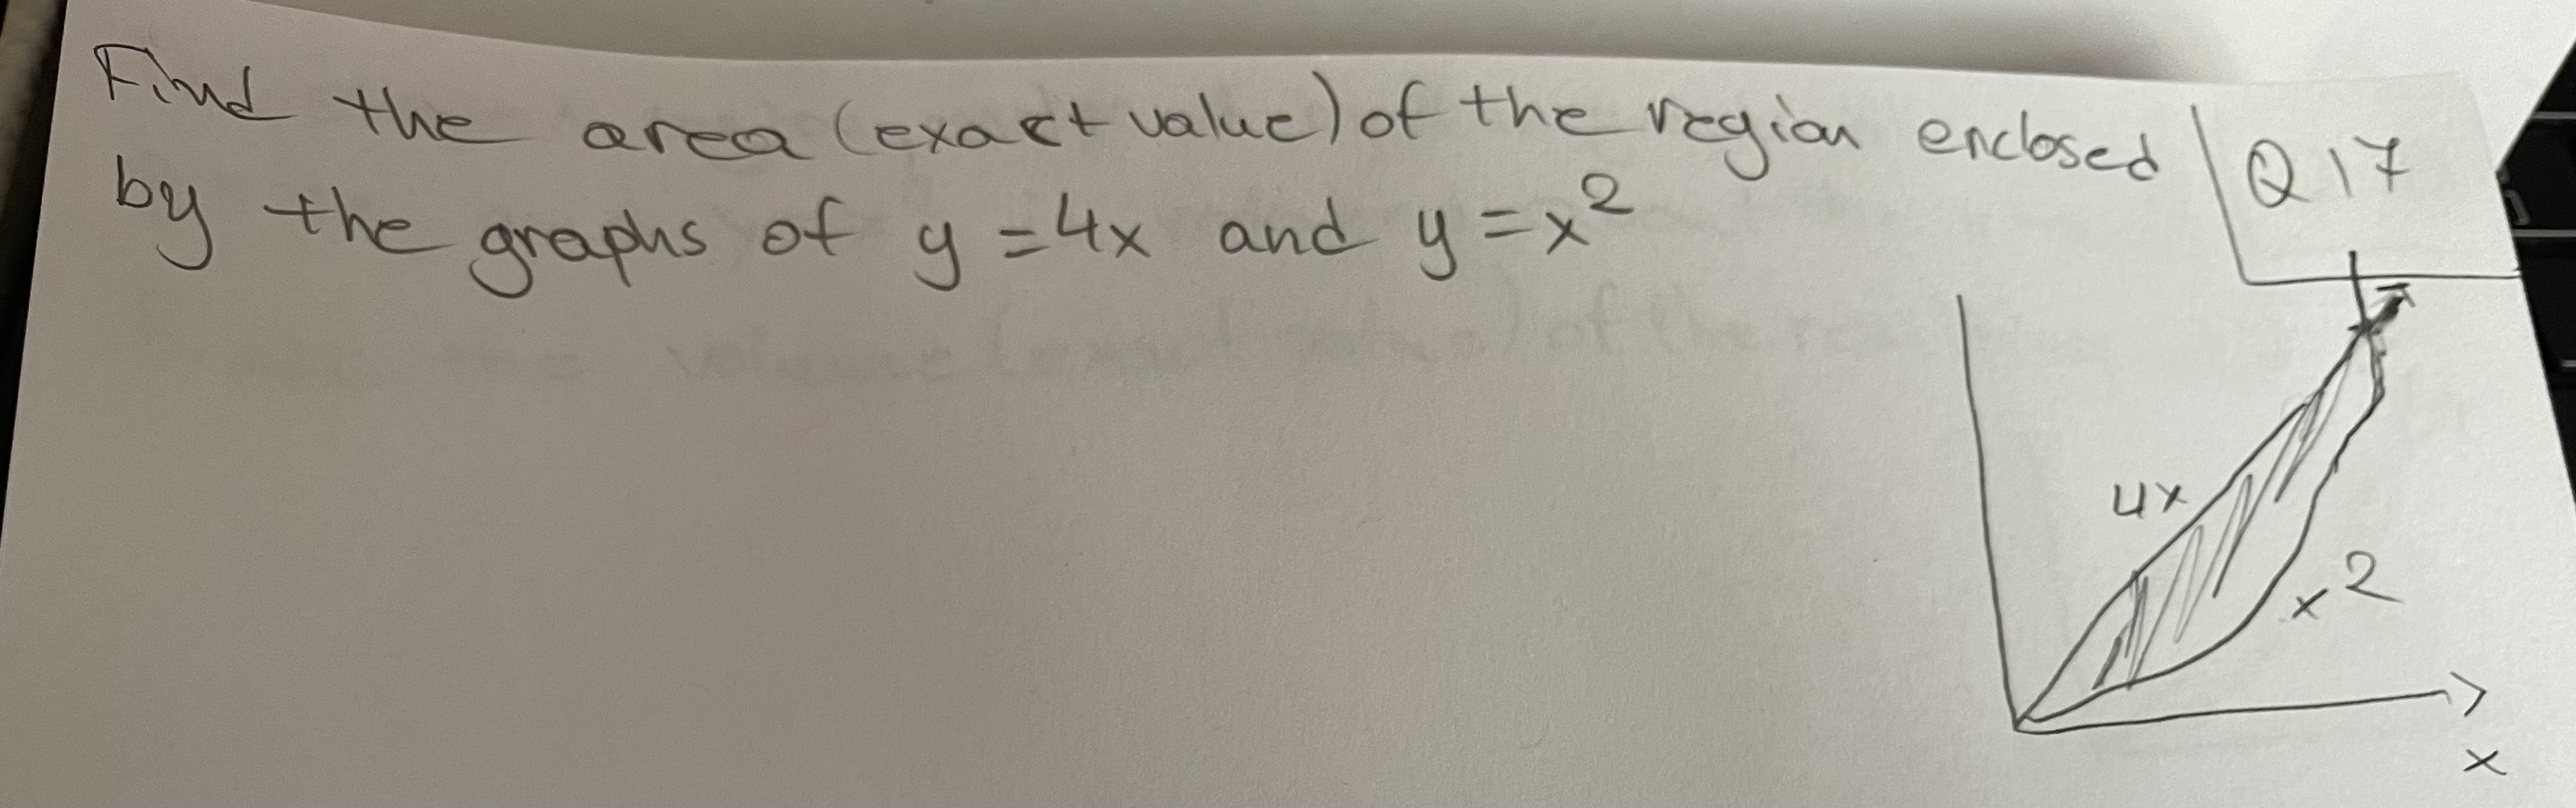 Find the area (exact value) of the region enclosed
by the graphs of y = 4x and y = x²
Q 17
4x
x²
x